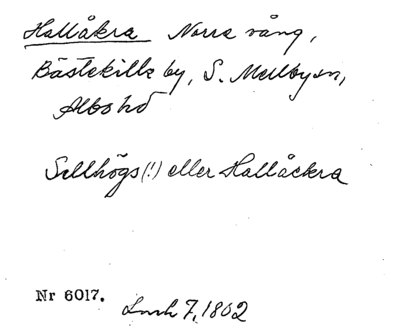 Hallåkra Norra vång,
Bästekille by, S. Mellby sn,
Albo hd
Sellhögs (!) eller Hallåckra
Nr 6017.
Lmh 7, 1802